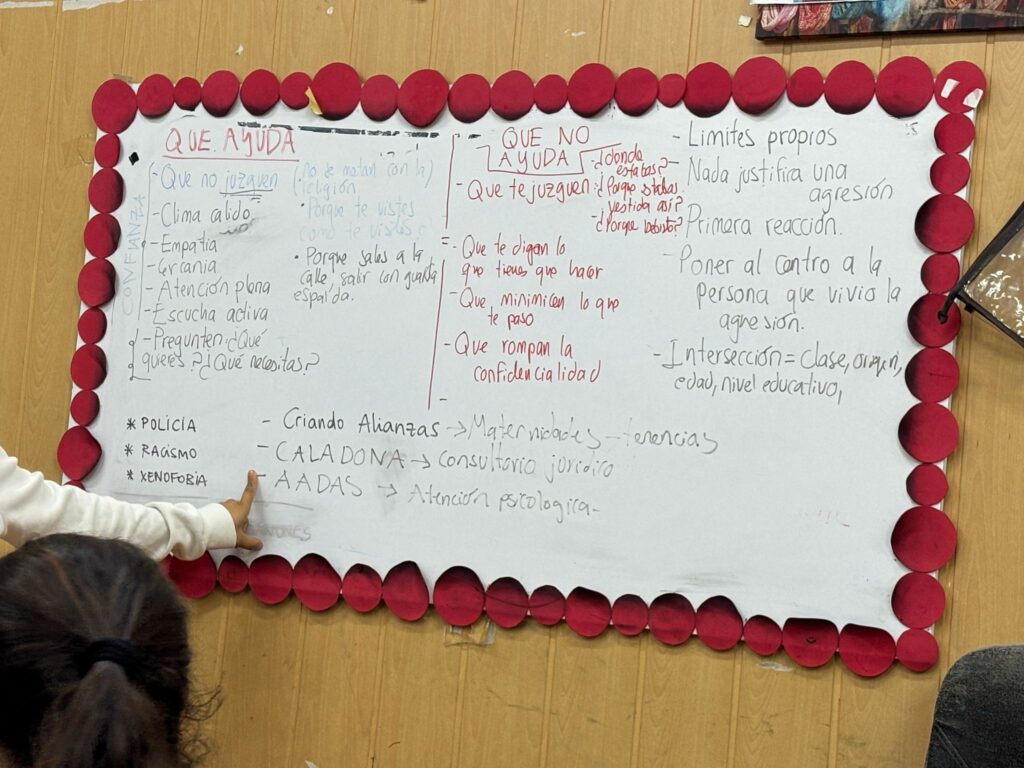 QUE AYUDA
- Que no juzguen
- Clima calido
- Empatia
- Cercania
- Atención plena
- Escucha activa
- Pregunten ¿Qué
quieres? ¿Qué necesitas?
CONFIANZA
religión
• Porque te vistes
como te vistes
• Porque sales a la
calle, salir con guarda
espalda.
QUE NO
AYUDA
- Que te juzguen:
¿donde
estabas?
¿Porque stabas
vestida así?
- ¿Porque
- Que te digan lo
que tienes que hacer
- Que minimicen lo que
te paso
- Que rompan la
confidencialidad
-
- Limites propios
- Nada justifica una
agresión
- Primera reacción.
- Poner al centro a la
persona que vivio la
agresión.
- Intersección = clase, origen,
edad, nivel educativo,
* POLICÍA
* RACISMO
* XENOFOBIA
- Criando Alianzas → Maternidades - tenencias
- CALADONA → Consultoria juridico
- AADAS → Atención psicologica -